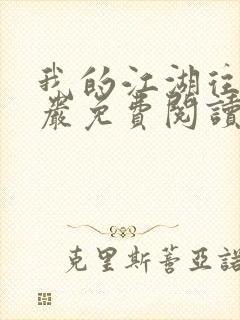 我的江湖往
嚴免費閱讀
克里斯蒂亞諾